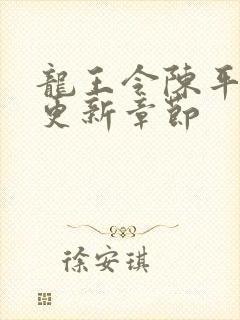 龍王令陳平
更新章節
徐安琪